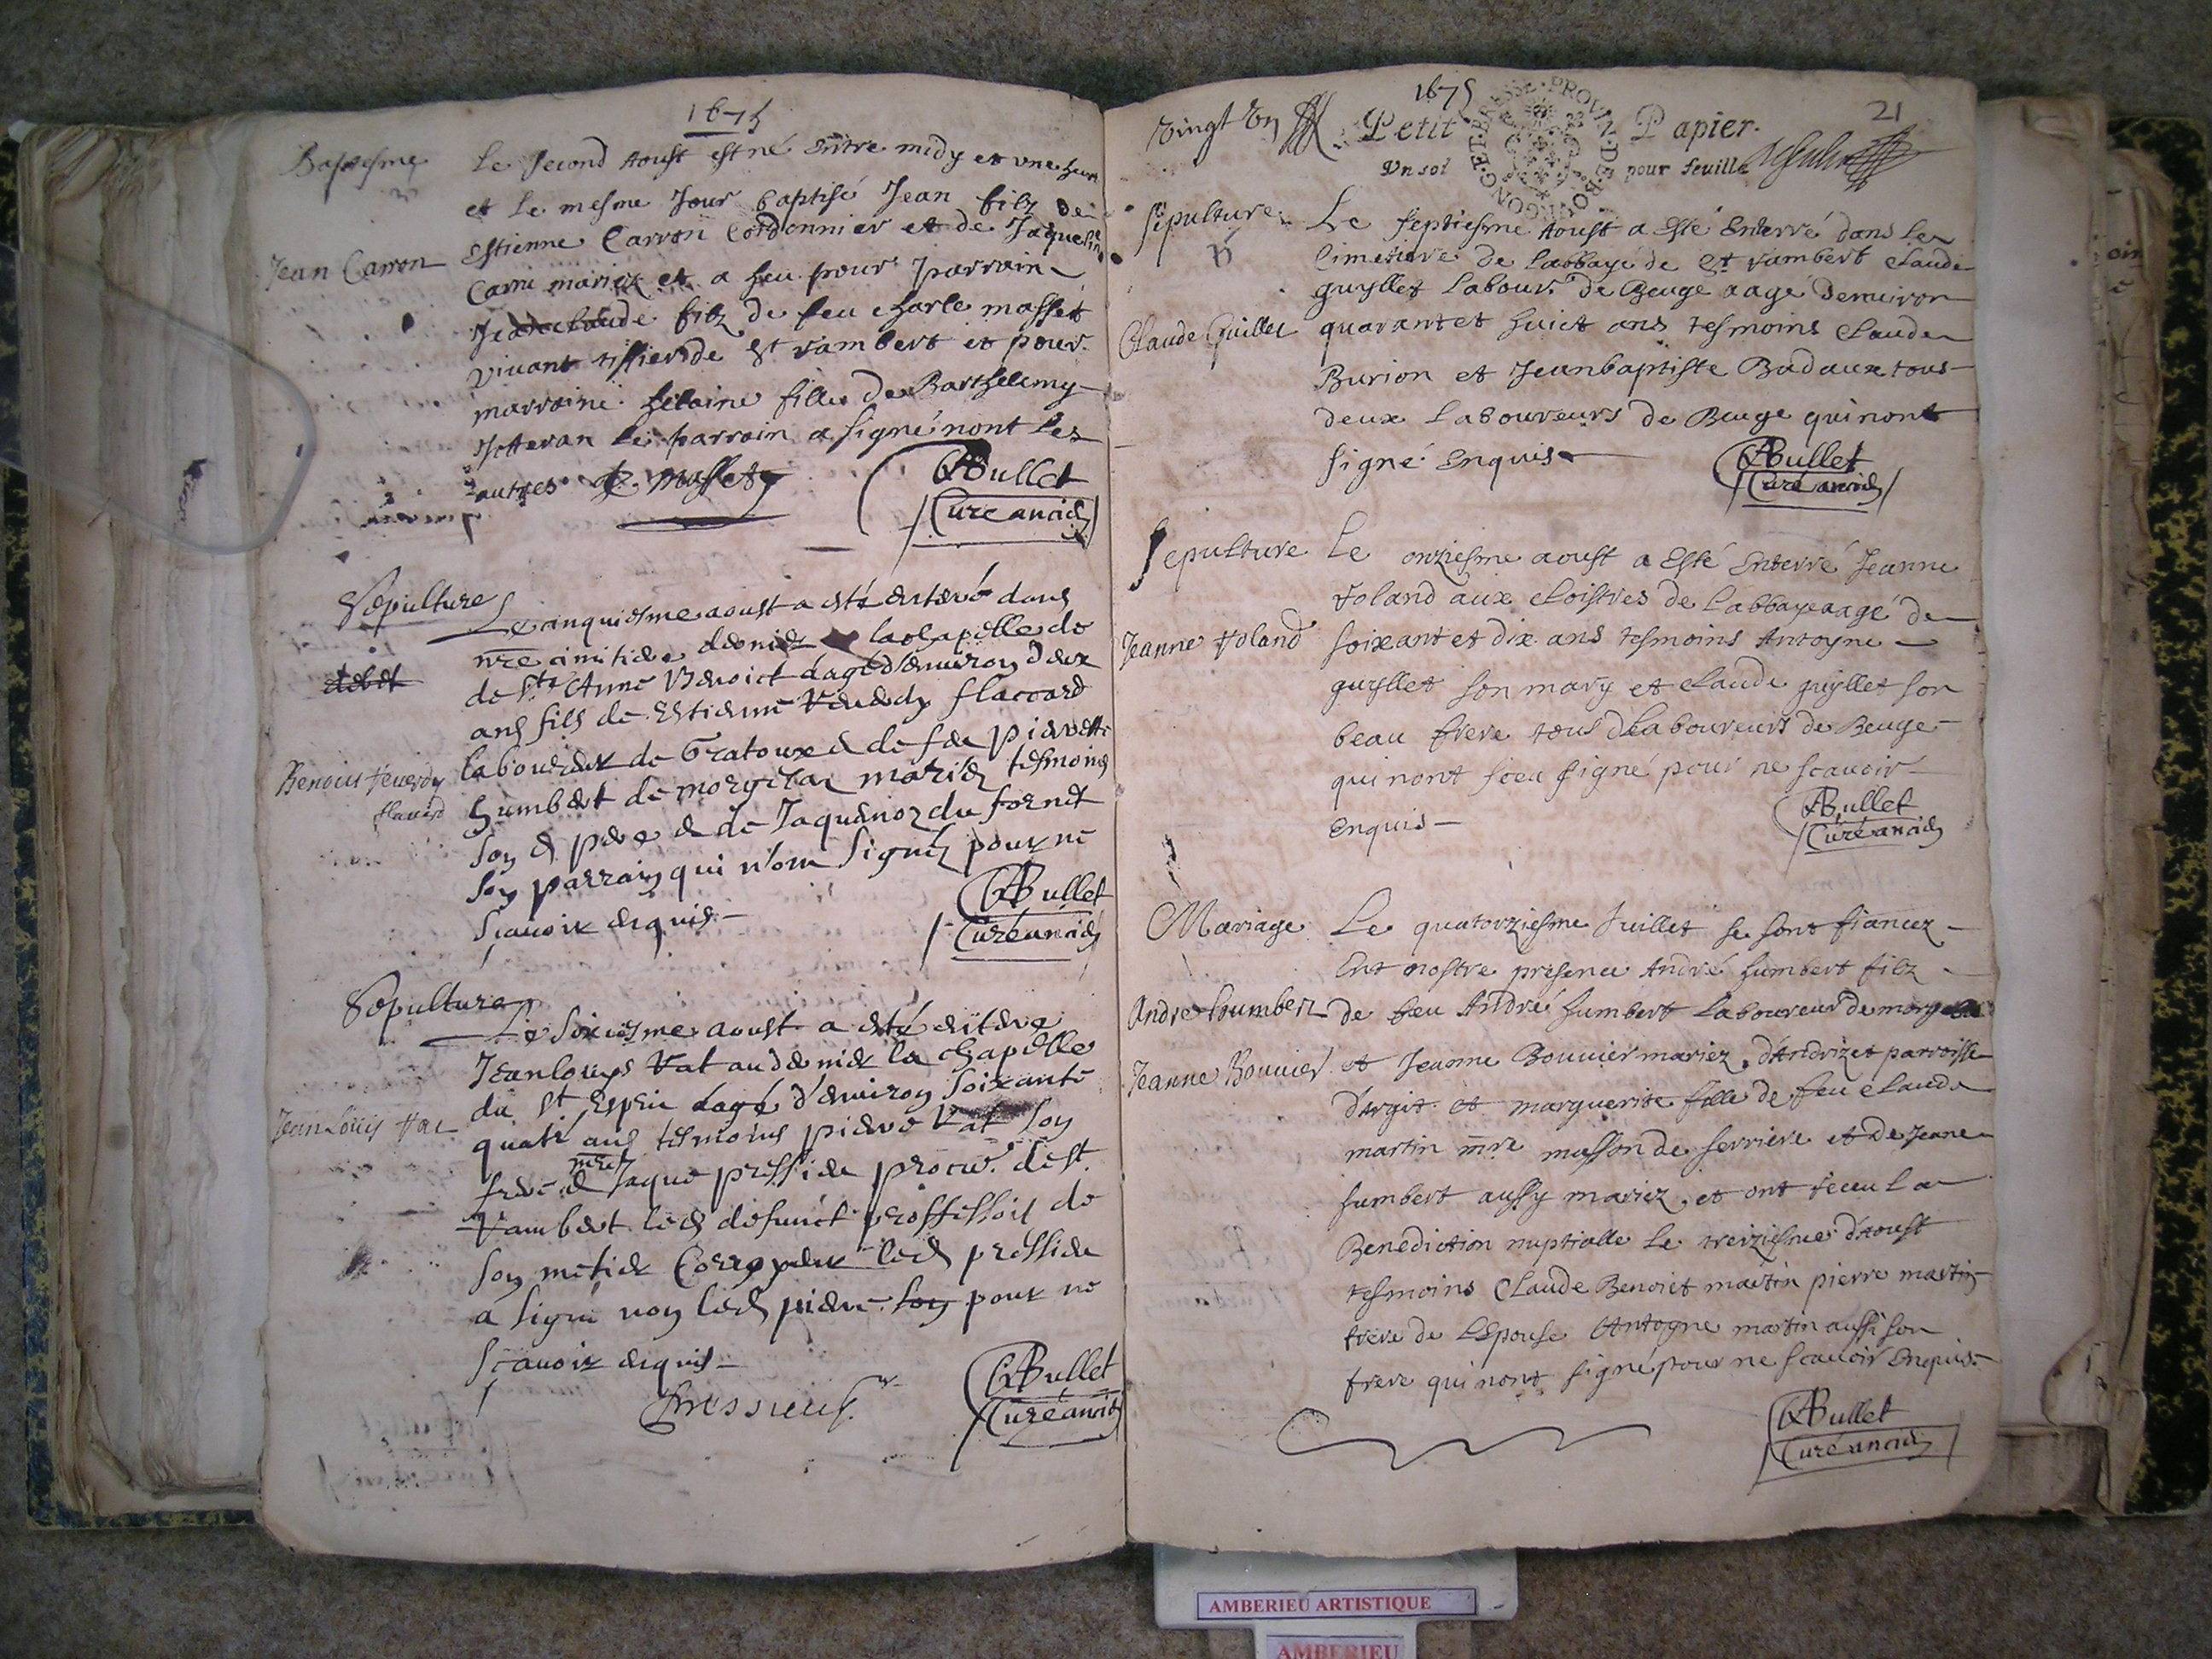 1675
Baptesme
Le second Aoust est né Entre midy et une heure
et le mesme Jour baptisé Jean filz de
Jean Carron
Estienne Carron Cordonnier et de Jaqueline
Carru mariez et a heu pour parrain
Claude filz de feu charle masset
vivant tissier de St rambert et pour
marraine helaine fille de Barthelemy
Jotteran le parrain a signé nont les
autres masset
ABullet
Curé ancien
Sepulture
Le cinquiesme aoust a esté enterré dans
nre cimitiere derrier la chapelle de
debet
de Ste Anne Benoict aagé d'environ deux
ans fils de Estienne Venerdy flaccard
Benoist Venerdy
flaccard
laboureur de Gratoux & de fee pierrette
humbert de morgelas mariez tesmoins
son d. pere & de Jaquemoz du fornet
son parrain qui n'ont signéz pour ne
scavoir enquis
ABullet
Curé ancien
Sepulture
Le Sixiesme aoust a esté enterré
Jean louys Vat au dernier la chapelle
du St Esprit aagé d'environ soixante
Jean Louis Vat
quatre ans tesmoins pierre Vat son
frere & mre Jaque pressieu procur. de St
rambert led. defunct professoit de
son metier Corroyeur led. pressieu
a signé non led. pierre son pour ne
scavoir enquis
Pressieu
ABullet
Curé ancien
1675
21
vingt un
Petit Papier.
Un sol pour feuille
BOURGONG. ET BRESSE. PROVIN. DE
Sepulture
Le septiesme Aoust a Esté Enterré dans le
Cimetiere de labbaye de St rambert Claude
guyllet Labour. de Beuge aagé denviron
Claude Guillet
quarantet huict ans tesmoins Claude
Burion et Jeanbaptiste Badaux tous
deux Laboureurs de Beuge qui nont
signé Enquis
ABullet
Curé ancien
Sepulture
Le onziesme aoust a Esté Enterré Jeanne
Voland aux Cloistres de Labbaye aagé de
Jeanne Voland
soixantet dix ans tesmoins Antoyne
guyllet son mary et Claude guyllet son
beau frere tous d Laboureurs de Beuge
qui nont sceu signé pour ne scavoir
Enquis
ABullet
Curé ancien
Mariage
Le quatorziesme Juillet se sont fiancez
Ent nostre presence André humbert filz
Andre humbert
de feu André humbert Laboureur de morgelas
Jeanne Bouvier
et Jeanne Bouvier mariez, d'Andrizet parroisse
d'Argit et marguerite fille de feu Claude
martin mre masson de serriere et de Jeane
humbert aussy mariez, et ont receu la
Benediction nuptialle le treiziesme d'Aoust
tesmoins Claude Benoict martin pierre martin
frere de LEpouse Antoyne martin aussi son
frere qui nont signé pour ne scavoir Enquis
ABullet
Curé ancien
AMBERIEU ARTISTIQUE
AMBERIEU